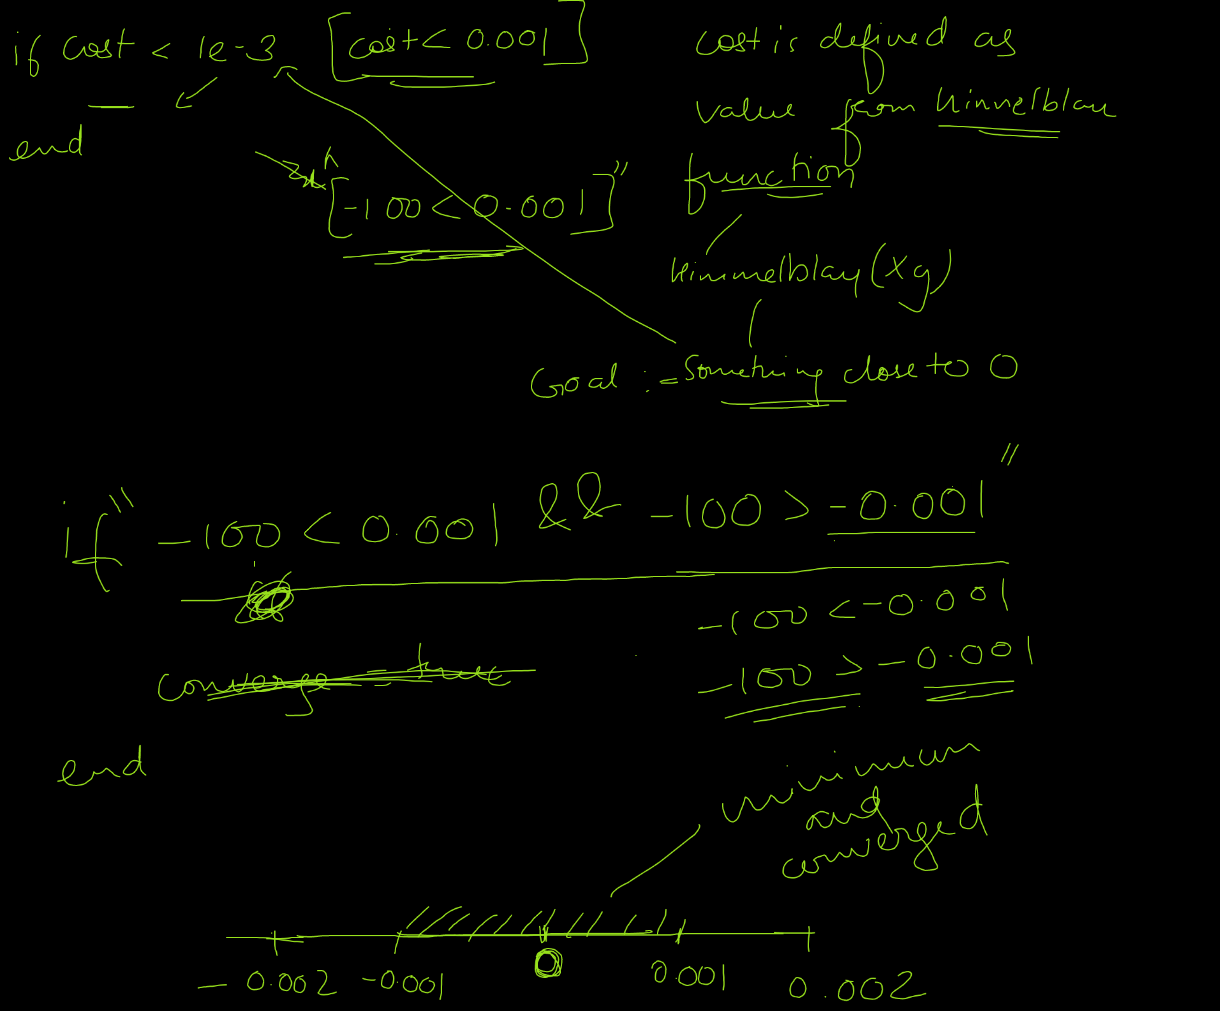 if cost < 1e-3 [cost < 0.001]
end
[-100 < 0.001]"
cost is defined as
value from Himmelblau
function
Himmelblau(Xg)
Goal := Something close to 0
if " -100 < 0.001 && -100 > -0.001"
-100 < -0.001
-100 > -0.001
converge = true
end
minimum
and
converged
-0.002 -0.001 0 0.001 0.002